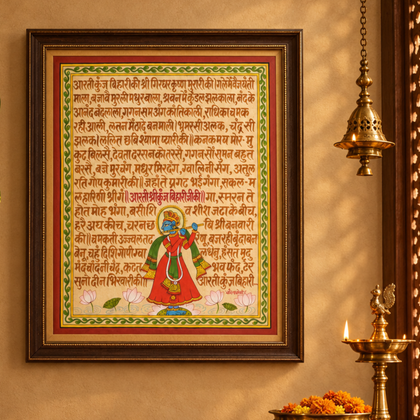 आरती कुंज बिहारीकी श्री गिरधर कृष्ण मुरारीकी।गलेमें बैजयंती
माला, बजावै मुरली मधुर बाला, श्रवनमें कुंडल झलकाला, नंदके
आनंद नंदलाला, गगनसम अंग कांति काली, राधिका चमक
रही आली, लतनमें ठाढ़े बनमाली। भ्रमरसी अलक,
झलक। ललित छबि श्यामा प्यारीकी॥ कनकमय मोर-मु
कुट बिलसै, देवता दरसनको तरसै, गगनसों सुमन बहुत
बरसै, बजे मुरचंग, मधुर मिरदंग, ग्वालिनी संग, अतुल
रति गोपकुमारीकी॥ जहाँते प्रगट भई गंगा, सकल-म
ल हारिणि श्रीगं॥आरती श्रीकुंज बिहारीजीकी॥गा, स्मरन ते
होत मोह भंगा, बसी शि व शीश जटाके बीच,
हरै अघ कीच, चरनछ बि श्रीबनवारी
की॥चमकती उज्ज्वल तट रेणु, बज रही बृंदाबन
बेनु, चहुँ दिशि गोपीग्वा लधेनु, हँसत मृदु
मंद चाँदनी चंद्र, कटत भव फंद, टेर
सुनो दीन भिखारीकी आरती कुंज बिहारी